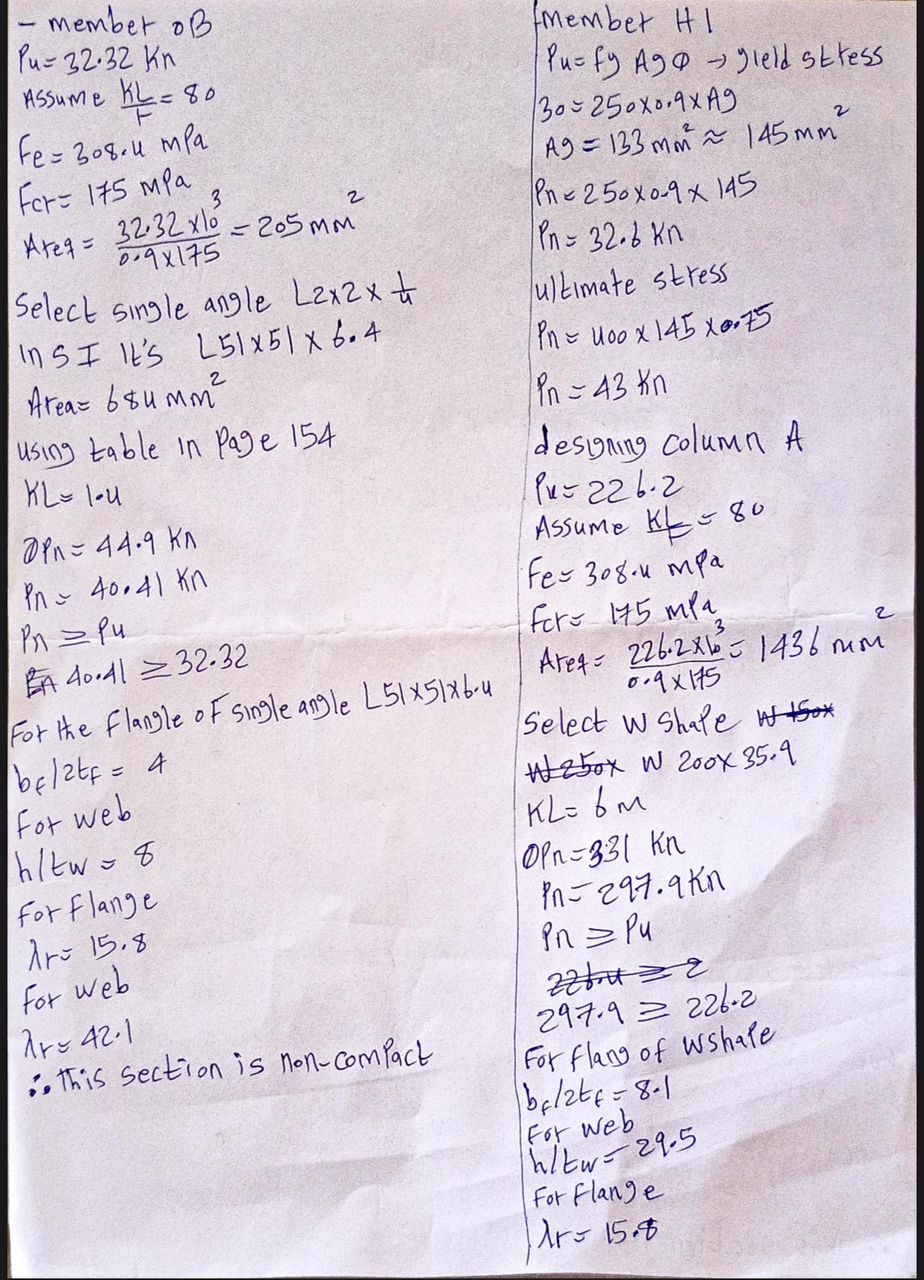 - member OB
Pu= 32.32 Kn
Assume KL/r = 80
Fe= 308.4 mpa
Fcr= 175 mpa
Areq = 32.32 x10^3 / 0.9x175 = 205 mm^2
Select single angle L2x2x 1/4
In SI It's L51x51x6.4
Area= 684 mm^2
using table in Page 154
KL= 1.4
ØPn= 44.9 Kn
Pn= 40.41 Kn
Pn ≥ Pu
40.41 ≥ 32.32
For the flangle of single angle L51x51x6.4
bf/2tf = 4
For web
h/tw = 8
For flange
λr= 15.8
For web
λr= 42.1
∴ This section is non-compact
member HI
Pu= fy Ag Ø → yield stress
30= 250x0.9xAg
Ag = 133 mm^2 ≈ 145 mm^2
Pn= 250x0.9 x 145
Pn= 32.6 Kn
ultimate stress
Pn= 400 x 145 x 0.75
Pn = 43 Kn
designing column A
Pu= 226.2
Assume KL/r = 80
Fe= 308.4 mpa
Fcr= 175 mpa
Areq= 226.2x10^3 / 0.9x175 = 1436 mm^2
Select W shape W 150x
W 250x W 200x35.9
KL= 6 m
ØPn= 331 Kn
Pn= 297.9 Kn
Pn ≥ Pu
226.4 ≥ 2
297.9 ≥ 226.2
For flang of W shape
bf/2tf = 8.1
For web
h/tw= 29.5
For flange
λr= 15.8